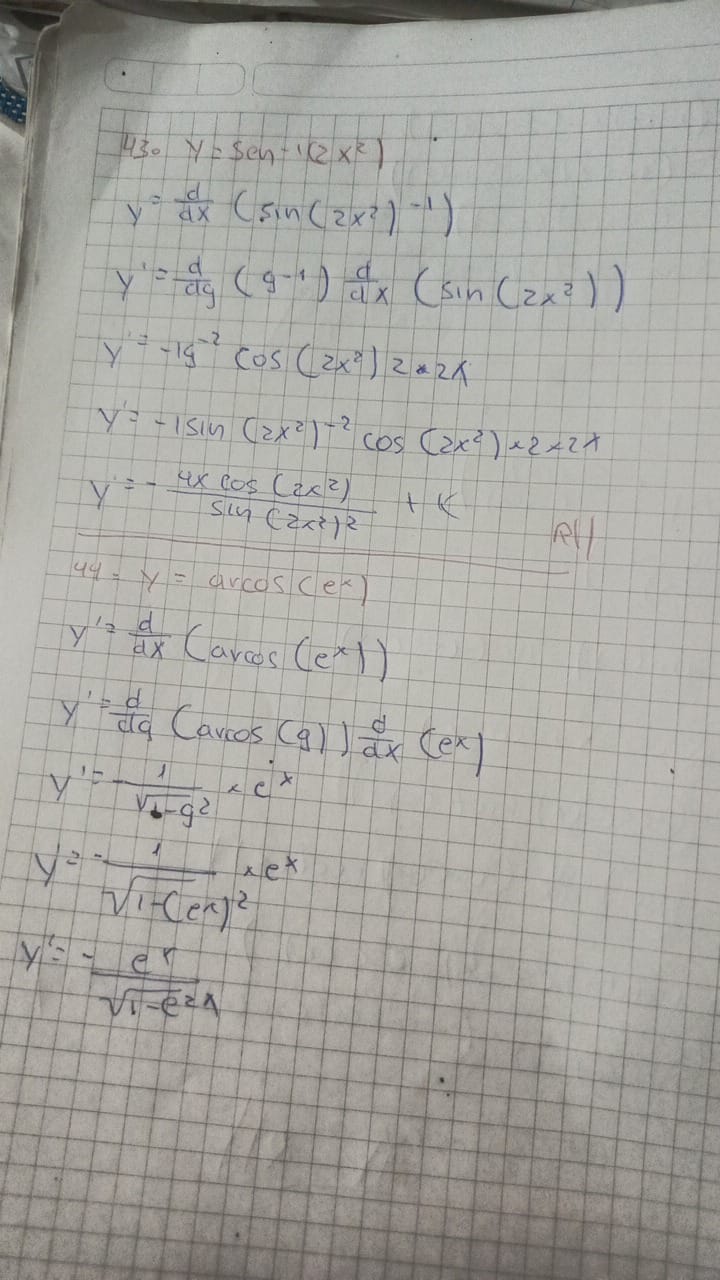 43. y = Sen⁻¹(2x²)
y = d/dx (sin(2x²)⁻¹)
y' = d/dg (g⁻¹) d/dx (sin(2x²))
y' = -1g⁻² cos(2x²) 2 × 2x
y' = -1 sin(2x²)⁻² cos(2x²) × 2 × 2x
y' = - 4x cos(2x²) / sin(2x²)² + K
R//
44- y = arcos(eˣ)
y' = d/dx (arcos(eˣ))
y' = d/dg (arcos(g)) d/dx (eˣ)
y' = - 1/√1-g² × eˣ
y' = - 1/√1-(eˣ)² × eˣ
y' = - eˣ/√1-e²ˣ